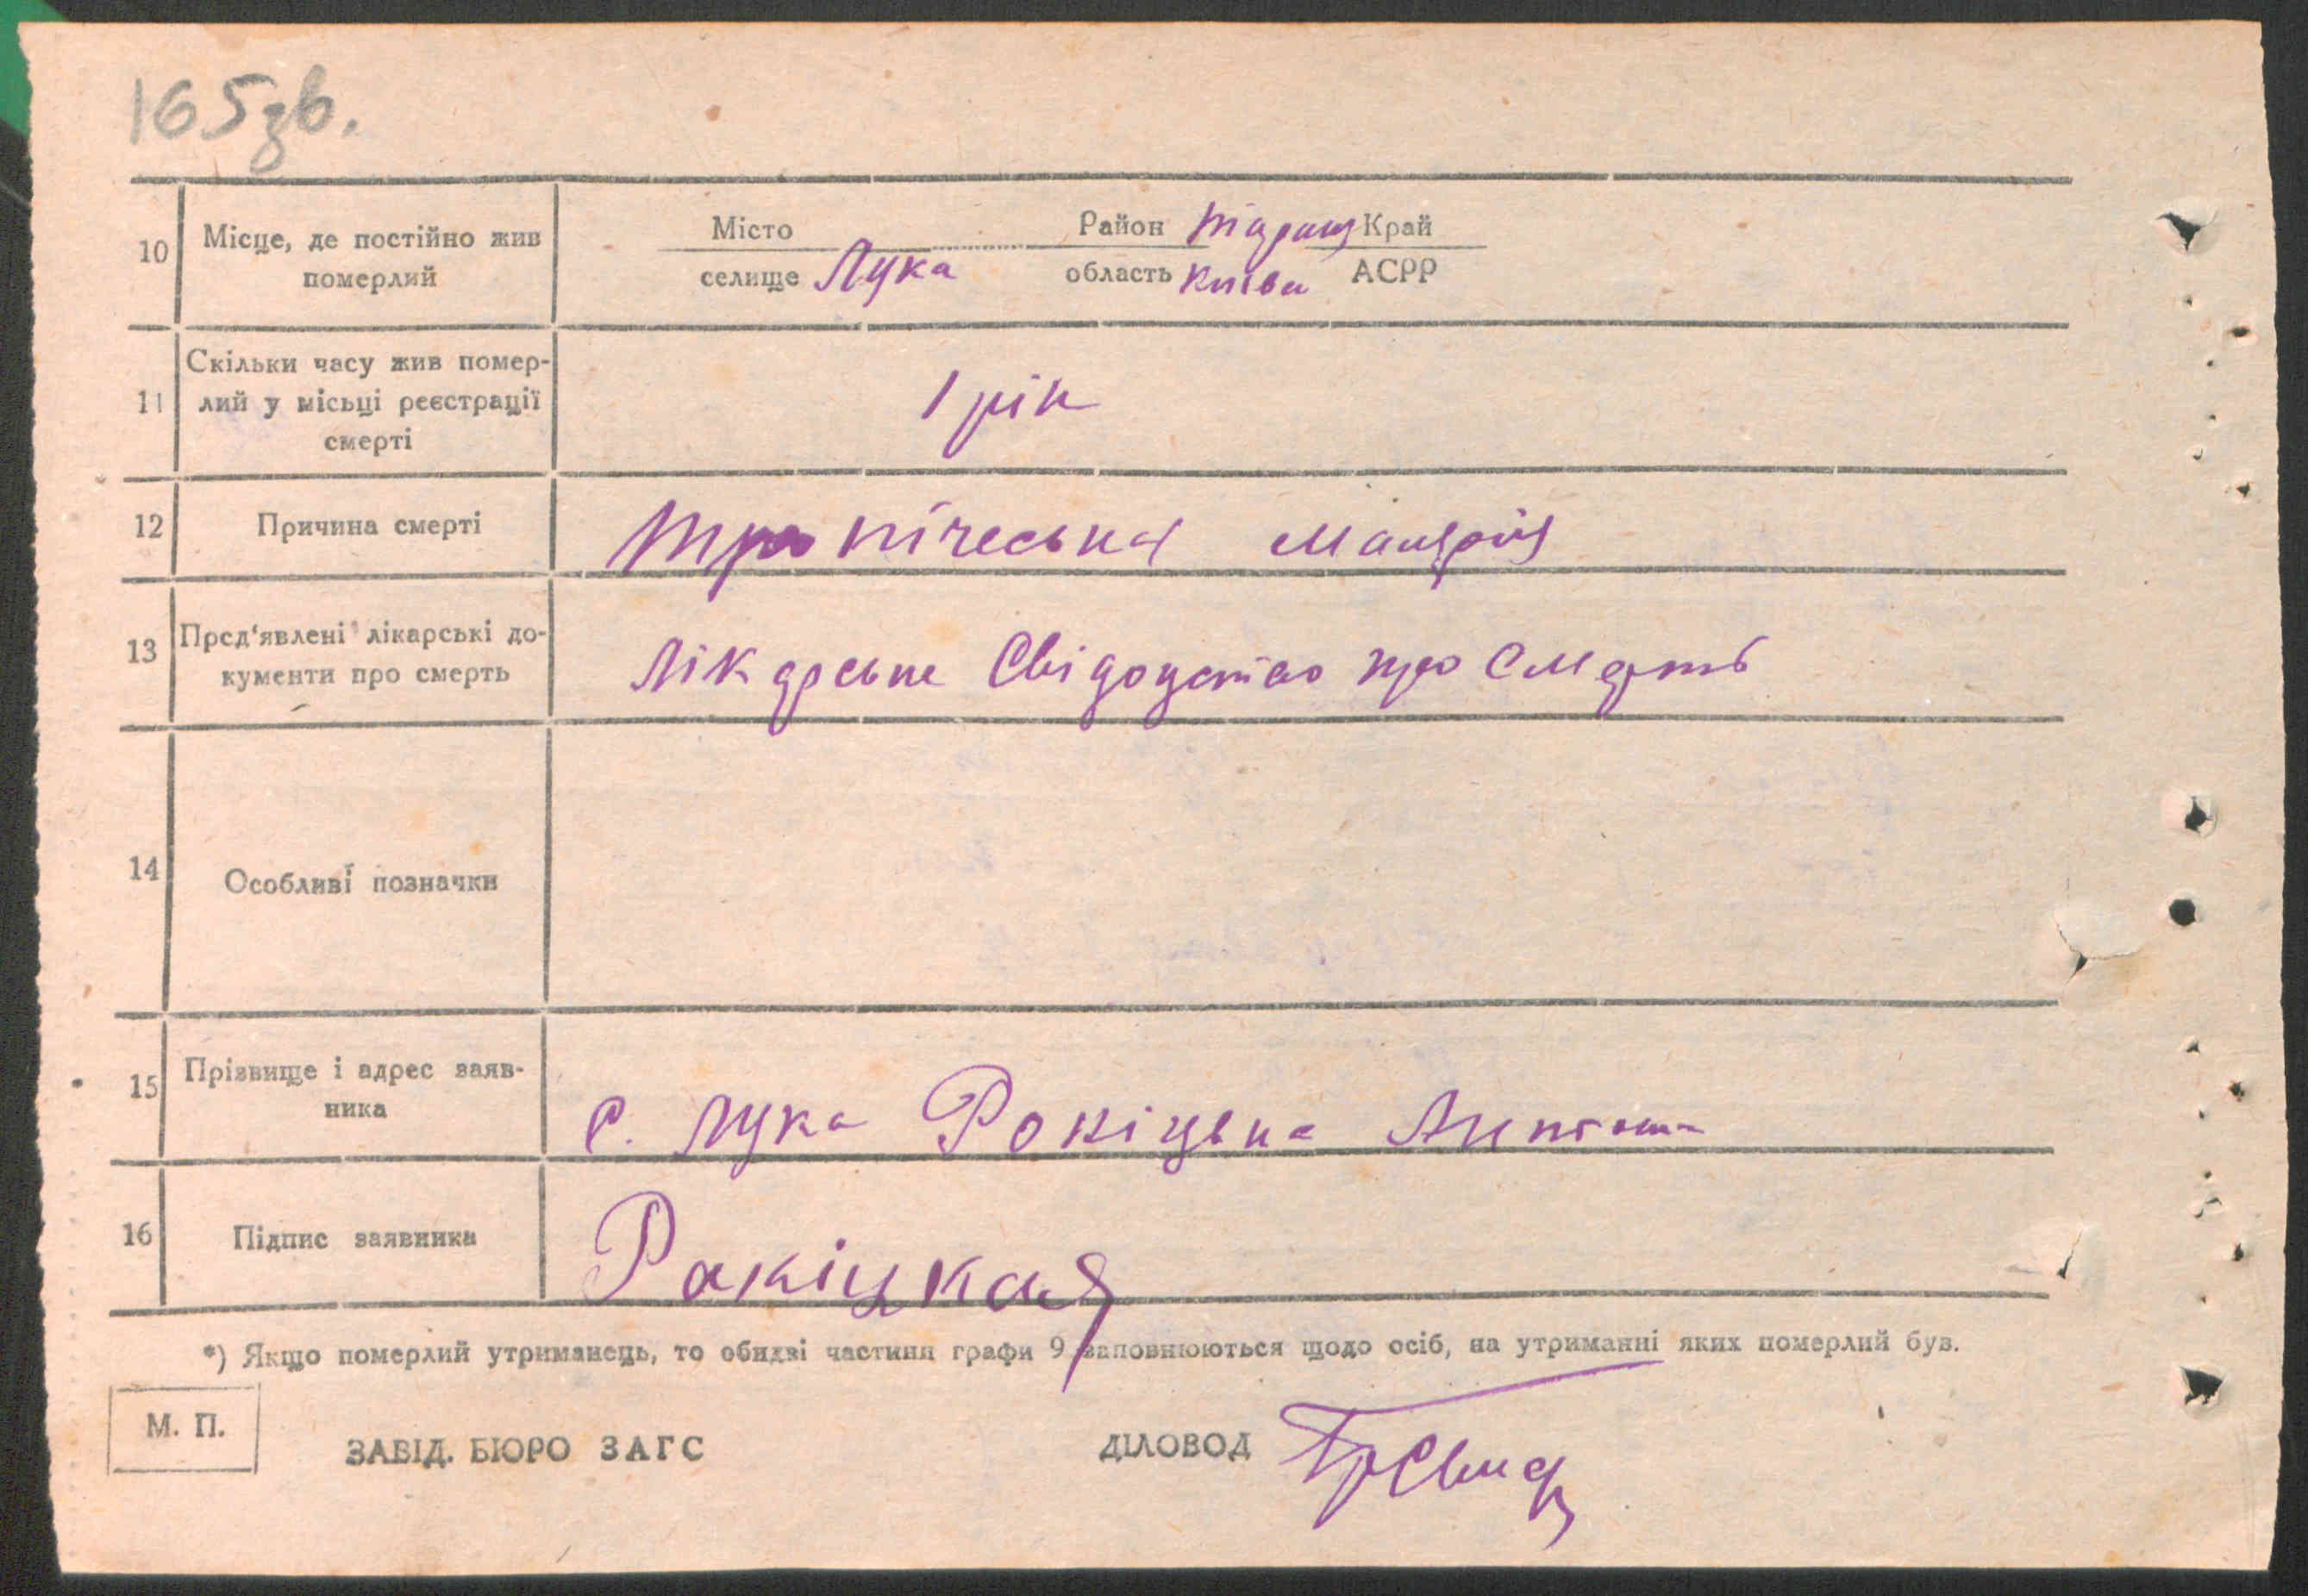 165зв.
10 Місце, де постійно жив померлий
Місто Район Край
селище Лука область Київ АСРР
11 Скільки часу жив помер-
лий у місьці реєстрації
смерті
1 рік
12 Причина смерті
тропічеська малярія
13 Пред'явлені лікарські до-
кументи про смерть
Лікарське Свідоцтво про Смерть
14 Особливі позначки
15 Прізвище і адрес заяв-
ника
с. Лука Рокіцька
16 Підпис заявника
Ракіцкая
*) Якщо померлий утриманець, то обидві частини графи 9 заповнюються щодо осіб, на утриманні яких померлий був.
М. П.
ЗАВІД. БЮРО ЗАГС ДІЛОВОД